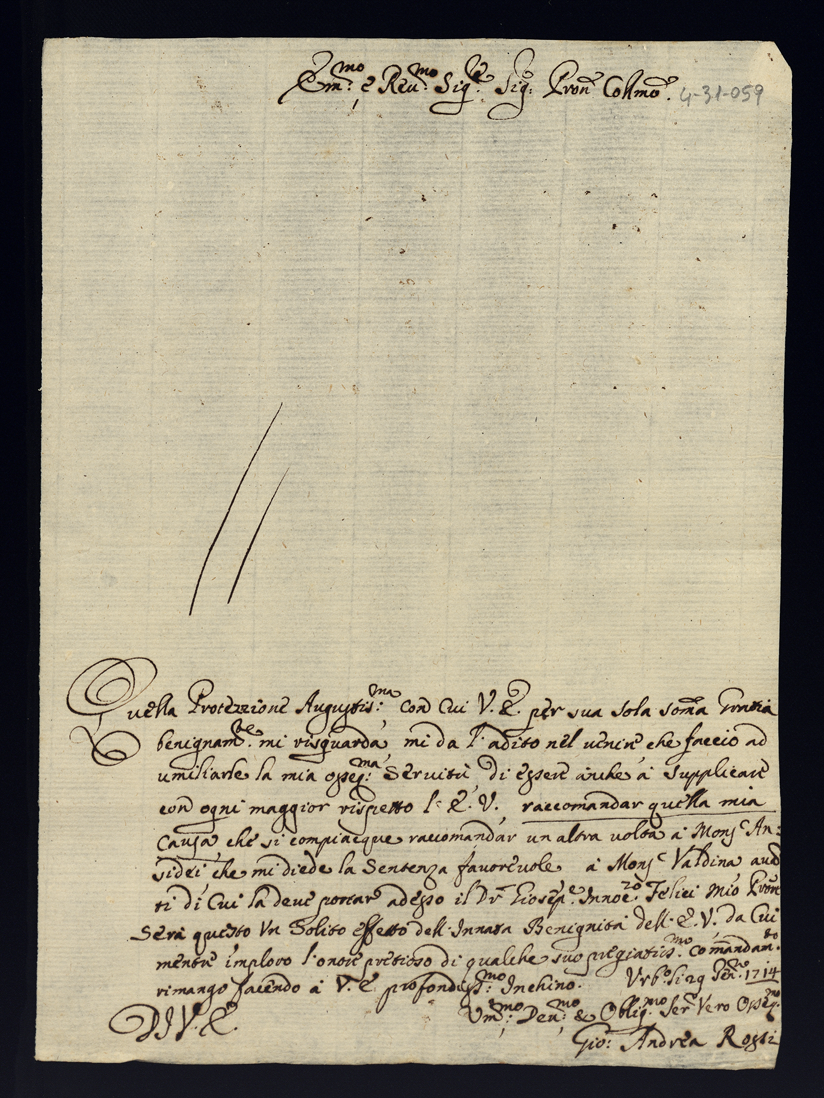 Em:mo e Rev:mo Sig:re Sig: Pron Collmo. 4-31-059
Quella Protezzione Augustis:ma con cui V. E. per sua sola soma Grazia
benignam:te mi risguarda, mi da l'adito nel venir che faccio ad
umiliarle la mia osseq:ma Servitù di essere anche à supplicare
con ogni maggior rispetto l'E. V. raccomandar quella mia
Causa che si compiacque raccomandar un altra volta à Mons:r An:
sidei che mi diede la Sentenza favorevole à Mons:r Valdina avd
ti di cui la deve portar adesso il Dr Giosep:e Innoc:zo Felici mio Pron
Serà questo un Solito effetto dell'Innata Benignità dell'E. V. da Cui
mentre imploro l'onor pretioso di qualche suo pregiatis:mo Comandam:to
rimango facendo à V. E. profondiss:mo Inchino. Urbo li 29 Gen:ro 1714
D I V. E. Um:mo Dev:mo & Oblig:mo Ser:r Vero Osseq:mo
Gio: Andrea Rossi